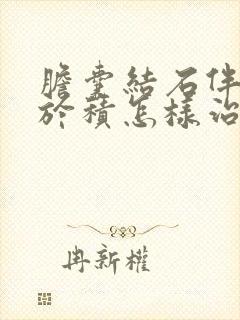 膽囊結石伴
於積怎樣治
冉新權